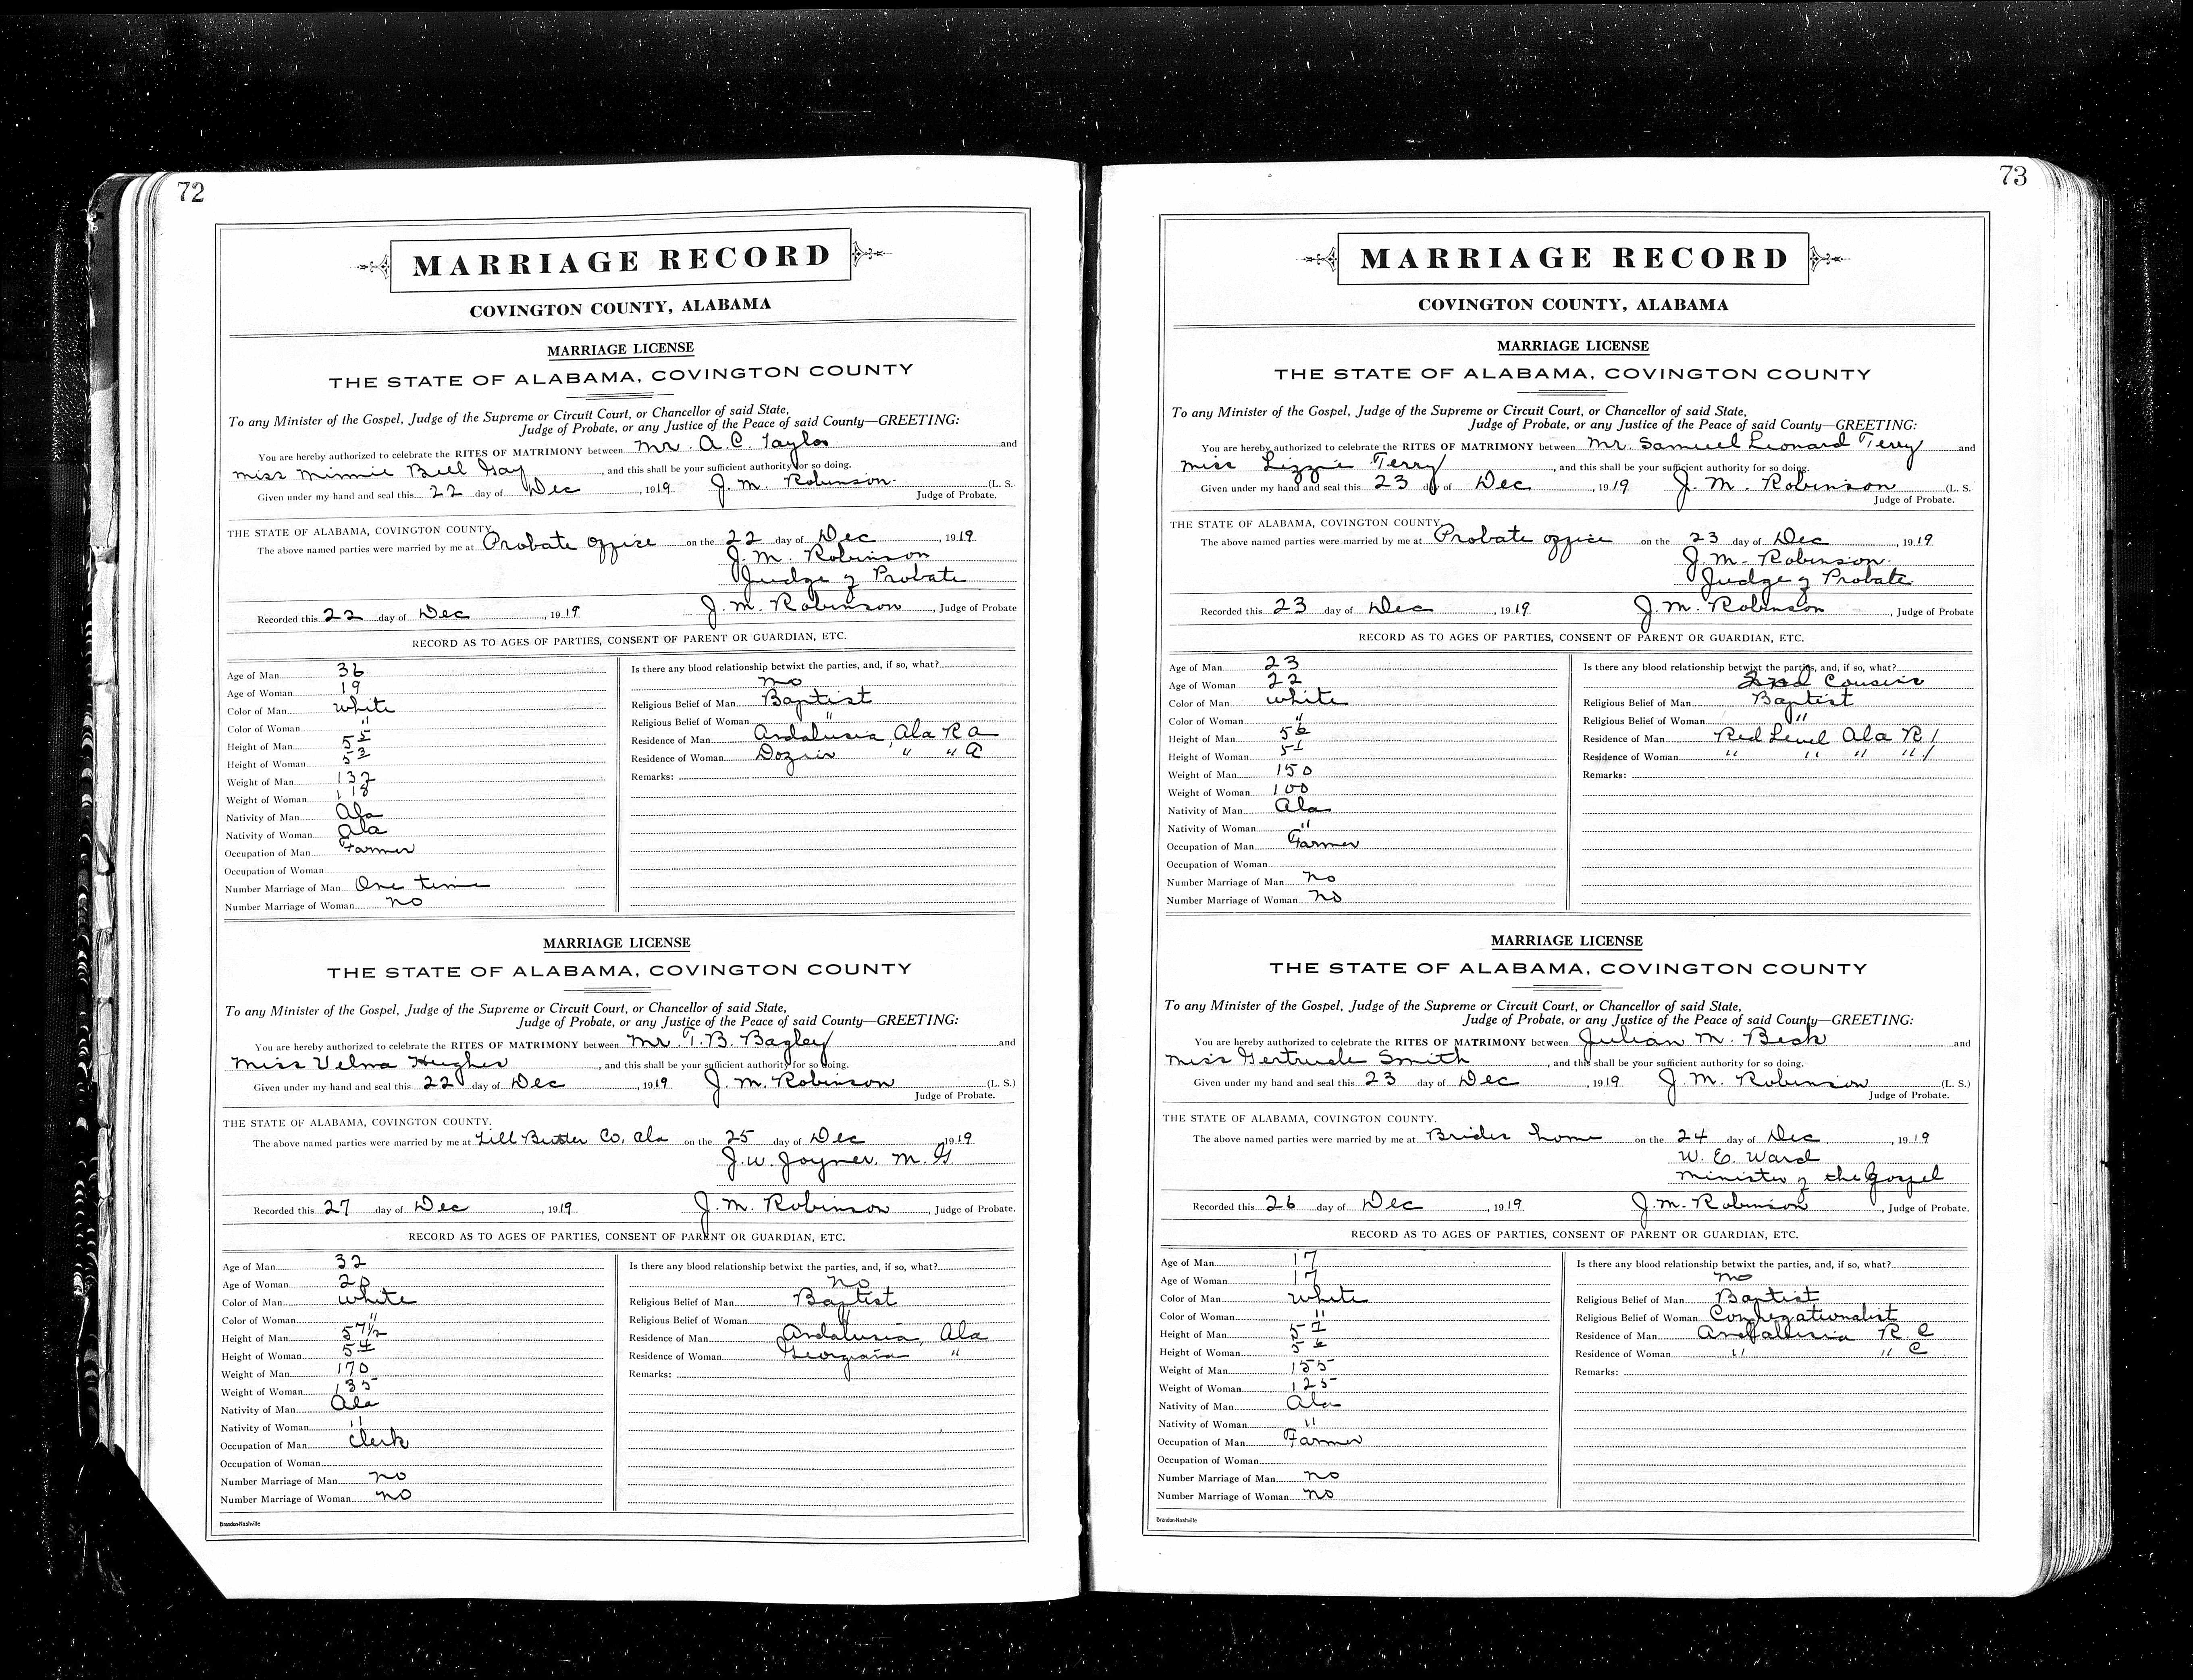 72
MARRIAGE RECORD
COVINGTON COUNTY, ALABAMA
MARRIAGE LICENSE
THE STATE OF ALABAMA, COVINGTON COUNTY
To any Minister of the Gospel, Judge of the Supreme or Circuit Court, or Chancellor of said State,
Judge of Probate, or any Justice of the Peace of said County—GREETING:
You are hereby authorized to celebrate the RITES OF MATRIMONY between Mr. A. C. Taylor and
Miss Minnie Bell Gay, and this shall be your sufficient authority for so doing.
Given under my hand and seal this 22 day of Dec, 1919 J. M. Robinson (L. S.
Judge of Probate.
THE STATE OF ALABAMA, COVINGTON COUNTY.
The above named parties were married by me at Probate office on the 22 day of Dec, 1919
J. M. Robinson
Judge of Probate
Recorded this 22 day of Dec, 1919 J. M. Robinson, Judge of Probate
RECORD AS TO AGES OF PARTIES, CONSENT OF PARENT OR GUARDIAN, ETC.
Age of Man 36
Age of Woman 19
Color of Man white
Color of Woman "
Height of Man 5 5
Height of Woman 5 3
Weight of Man 137
Weight of Woman 118
Nativity of Man Ala
Nativity of Woman Ala
Occupation of Man Farmer
Occupation of Woman
Number Marriage of Man One time
Number Marriage of Woman no
Is there any blood relationship betwixt the parties, and, if so, what?
no
Religious Belief of Man Baptist
Religious Belief of Woman "
Residence of Man Andalusia, Ala R A
Residence of Woman Dozier " " A
Remarks:
MARRIAGE LICENSE
THE STATE OF ALABAMA, COVINGTON COUNTY
To any Minister of the Gospel, Judge of the Supreme or Circuit Court, or Chancellor of said State,
Judge of Probate, or any Justice of the Peace of said County—GREETING:
You are hereby authorized to celebrate the RITES OF MATRIMONY between Mr. T. B. Bagley and
Miss Velma Hughes, and this shall be your sufficient authority for so doing.
Given under my hand and seal this 22 day of Dec, 1919 J. M. Robinson (L. S.)
Judge of Probate.
THE STATE OF ALABAMA, COVINGTON COUNTY.
The above named parties were married by me at Butler Co, Ala on the 25 day of Dec 1919
J. W. Joyner, M. G
Recorded this 27 day of Dec, 1919 J. M. Robinson, Judge of Probate.
RECORD AS TO AGES OF PARTIES, CONSENT OF PARENT OR GUARDIAN, ETC.
Age of Man 32
Age of Woman 20
Color of Man white
Color of Woman "
Height of Man 5 7 1/2
Height of Woman 5 4
Weight of Man 170
Weight of Woman 135
Nativity of Man Ala
Nativity of Woman "
Occupation of Man Clerk
Occupation of Woman
Number Marriage of Man no
Number Marriage of Woman no
Is there any blood relationship betwixt the parties, and, if so, what?
no
Religious Belief of Man Baptist
Religious Belief of Woman "
Residence of Man Andalusia, Ala
Residence of Woman Georgiana "
Remarks:
Brandon-Nashville
73
MARRIAGE RECORD
COVINGTON COUNTY, ALABAMA
MARRIAGE LICENSE
THE STATE OF ALABAMA, COVINGTON COUNTY
To any Minister of the Gospel, Judge of the Supreme or Circuit Court, or Chancellor of said State,
Judge of Probate, or any Justice of the Peace of said County—GREETING:
You are hereby authorized to celebrate the RITES OF MATRIMONY between Mr. Samuel Leonard Terry and
Miss Lizzie Terry, and this shall be your sufficient authority for so doing.
Given under my hand and seal this 23 day of Dec, 1919 J. M. Robinson (L. S.
Judge of Probate.
THE STATE OF ALABAMA, COVINGTON COUNTY.
The above named parties were married by me at Probate office on the 23 day of Dec, 1919
J. M. Robinson
Judge of Probate
Recorded this 23 day of Dec, 1919 J. M. Robinson, Judge of Probate
RECORD AS TO AGES OF PARTIES, CONSENT OF PARENT OR GUARDIAN, ETC.
Age of Man 23
Age of Woman 22
Color of Man white
Color of Woman "
Height of Man 5 6
Height of Woman 5 1
Weight of Man 150
Weight of Woman 100
Nativity of Man Ala
Nativity of Woman "
Occupation of Man Farmer
Occupation of Woman
Number Marriage of Man no
Number Marriage of Woman no
Is there any blood relationship betwixt the parties, and, if so, what?
Cousins
Religious Belief of Man Baptist
Religious Belief of Woman "
Residence of Man Red Level Ala R 1
Residence of Woman " " " " 1
Remarks:
MARRIAGE LICENSE
THE STATE OF ALABAMA, COVINGTON COUNTY
To any Minister of the Gospel, Judge of the Supreme or Circuit Court, or Chancellor of said State,
Judge of Probate, or any Justice of the Peace of said County—GREETING:
You are hereby authorized to celebrate the RITES OF MATRIMONY between Julian M. Beck and
Miss Gertrude Smith, and this shall be your sufficient authority for so doing.
Given under my hand and seal this 23 day of Dec, 1919 J. M. Robinson (L. S.)
Judge of Probate.
THE STATE OF ALABAMA, COVINGTON COUNTY.
The above named parties were married by me at Brides home on the 24 day of Dec, 1919
W. E. Ward
Minister of the Gospel
Recorded this 26 day of Dec, 1919 J. M. Robinson, Judge of Probate.
RECORD AS TO AGES OF PARTIES, CONSENT OF PARENT OR GUARDIAN, ETC.
Age of Man 17
Age of Woman 17
Color of Man white
Color of Woman "
Height of Man 5 7
Height of Woman 5 6
Weight of Man 155
Weight of Woman 125
Nativity of Man Ala
Nativity of Woman "
Occupation of Man Farmer
Occupation of Woman
Number Marriage of Man no
Number Marriage of Woman no
Is there any blood relationship betwixt the parties, and, if so, what?
no
Religious Belief of Man Baptist
Religious Belief of Woman Congregationalist
Residence of Man Andallusia R C
Residence of Woman " " C
Remarks:
Brandon-Nashville